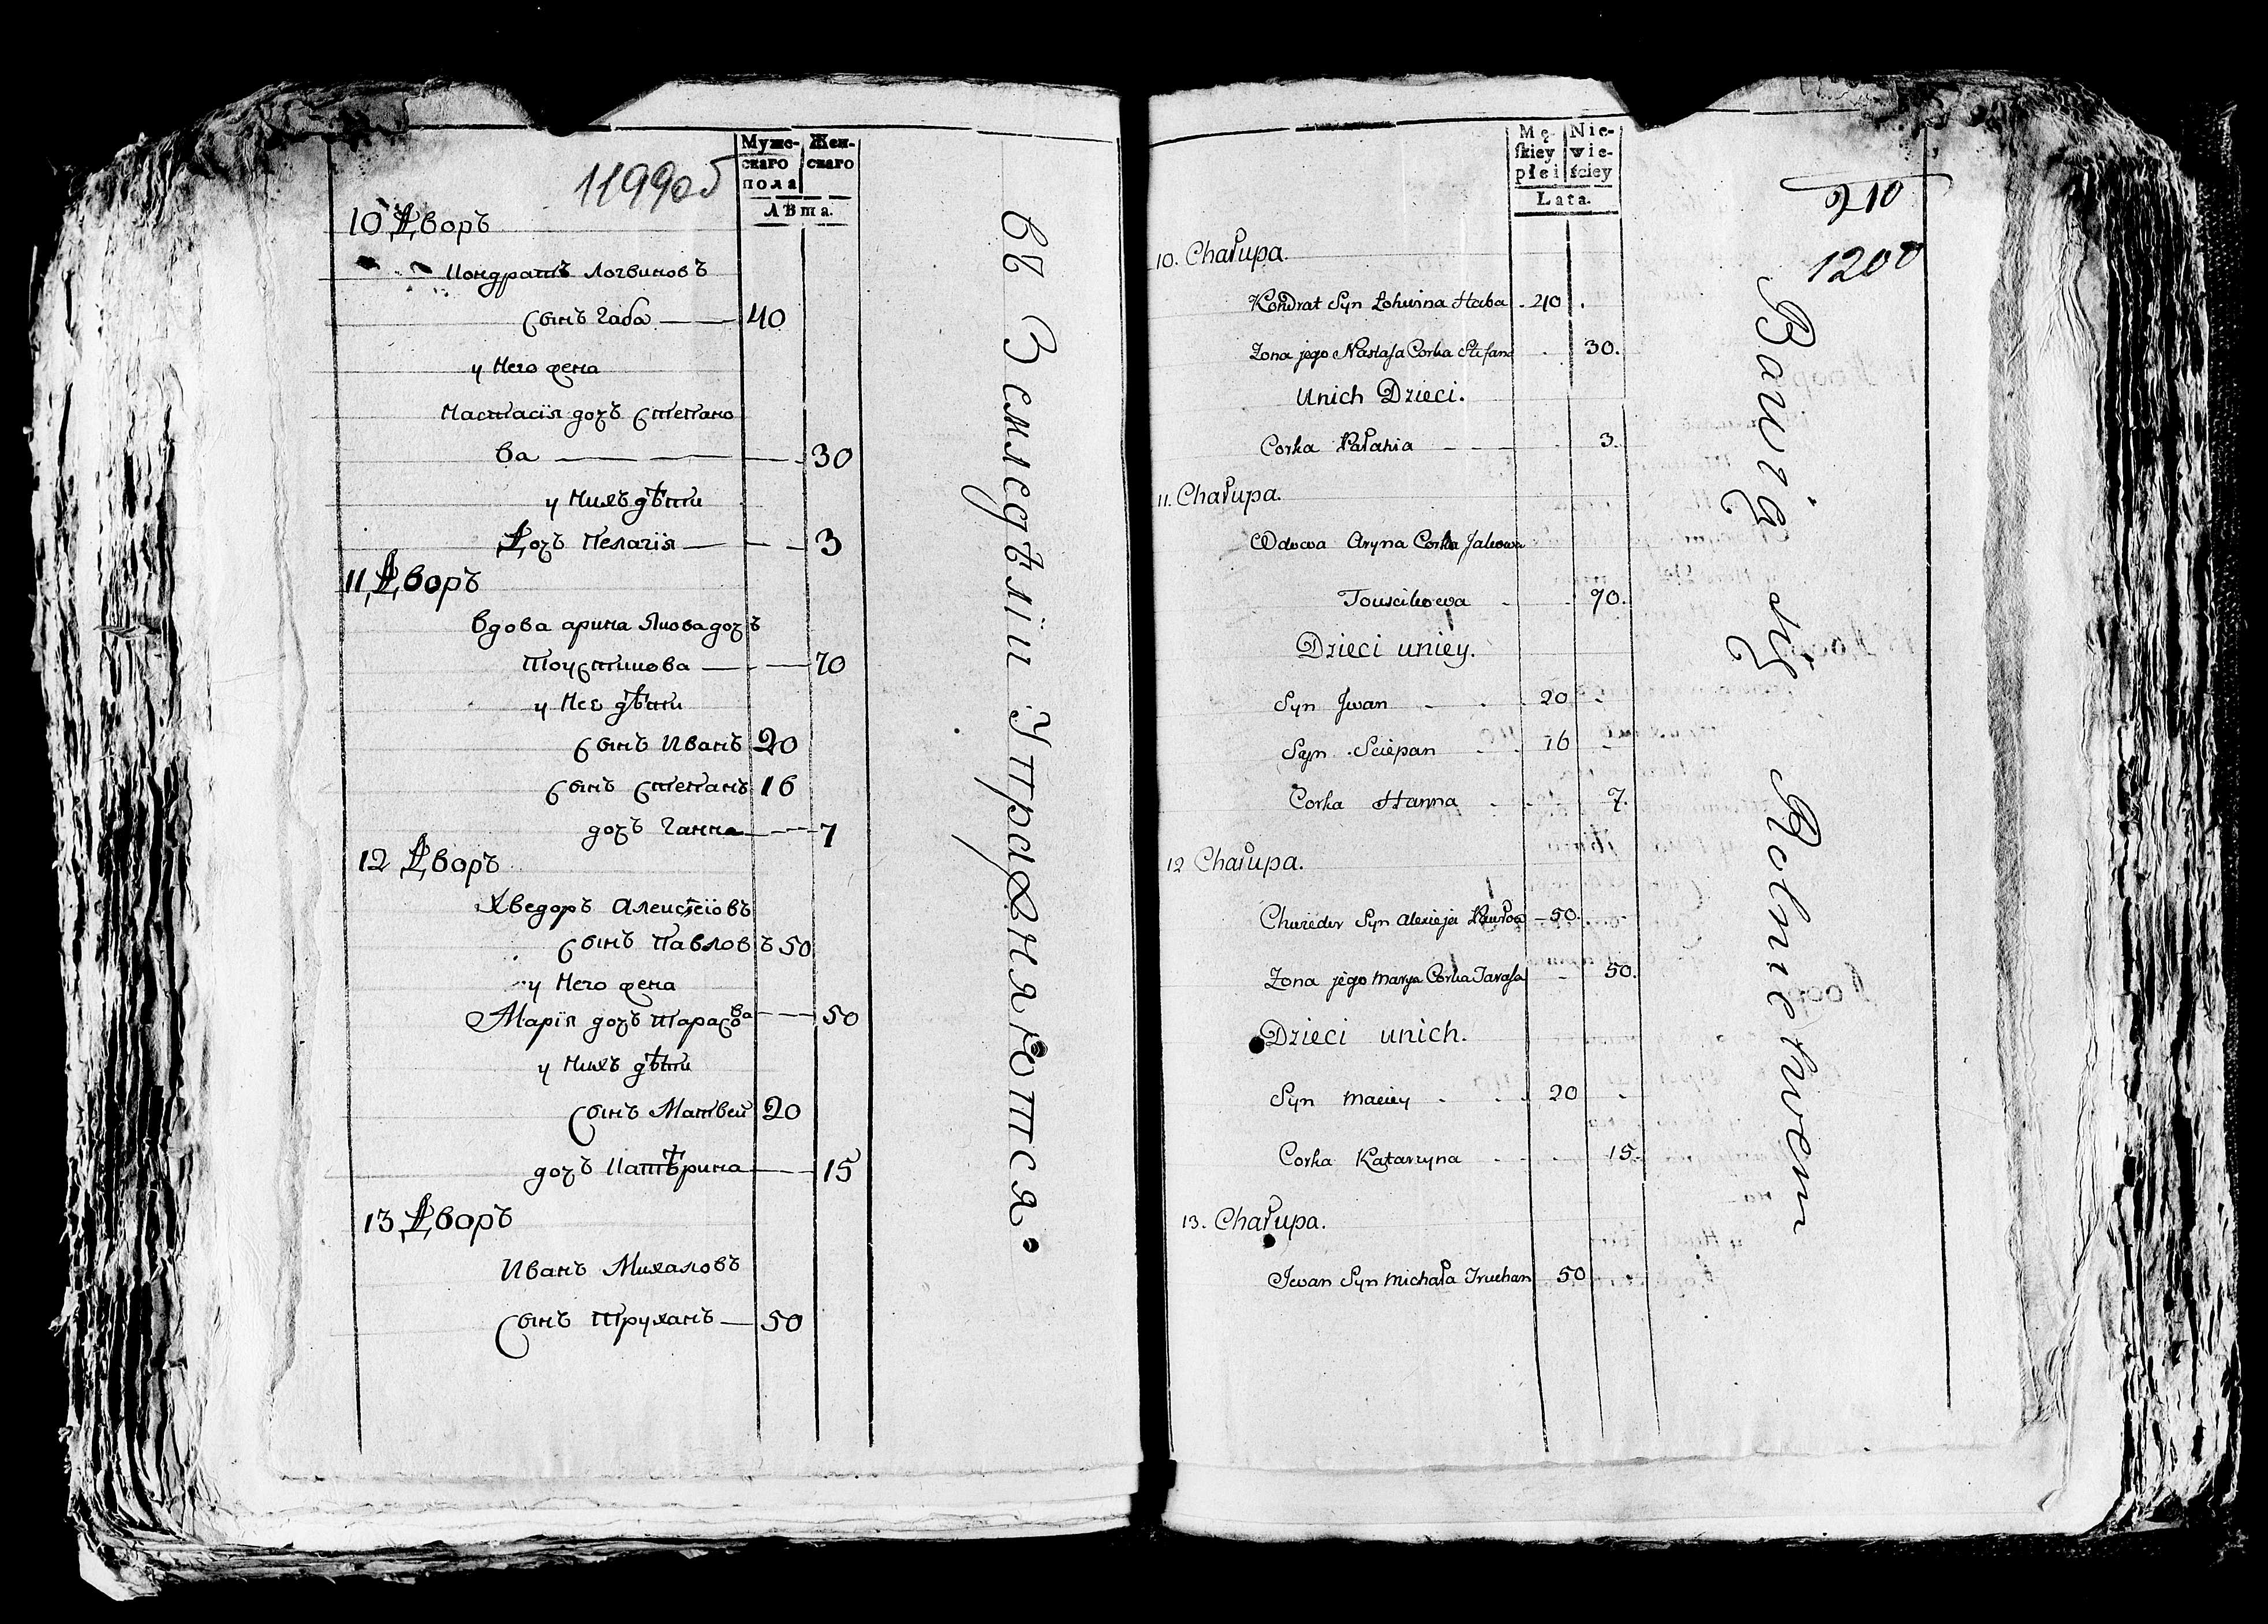 1199об
Муже-
скаго
пола
Жен-
скаго
Лѣта.
10 Дворъ
Кондратъ Логвиновъ
сынъ Габа 40
у него жена
Настасія дочь Степано
ва 30
у нихъ дѣти
Дочь Пелагія 3
11 Дворъ
Вдова Арина Якова дочъ
Тоустикова 70
у нее дѣти
сынъ Иванъ 20
сынъ Степанъ 16
дочъ Ганна 7
12 Дворъ
Хведоръ Алексѣіовъ
сынъ Павловъ 50
у него жена
Марія дочъ Тарасова 50
у нихъ дѣти
сынъ Матвей 20
дочъ Катѣрина 15
13 Дворъ
Иванъ Михаловъ
сынъ Труханъ 50
въ Земледѣліи Упражняются.
Mę-
skiey
płei
Nie-
wie-
ściey
Lata.
210
1200
10. Chałupa.
Kondrat Syn Lohwina Haba 40
Zona jego Nastasa Corka Stefana 30.
Unich Dzieci.
Corka Pałahia 3.
11. Chałupa.
Wdowa Aryna Corka Jakowa
Touscikowa 70.
Dzieci uniey.
Syn Jwan 20
Syn Sciepan 16
Corka Hanna 7.
12 Chałupa.
Chwieder Syn Alexieja Pawłow 50.
Zona jego Marya Corka Tarasa 50.
Dzieci unich.
Syn Maciey 20
Corka Katarzyna 15.
13. Chałupa.
Jwan Syn Michała Truchan 50
Bawią się Rolnictwem